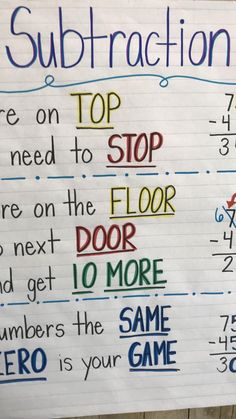 Subtraction
re on TOP
need to STOP
re on the FLOOR
next DOOR
nd get 10 MORE
umbers the SAME
ERO is your GAME
7
-4
3
6 7
-4
2
75
-45
30